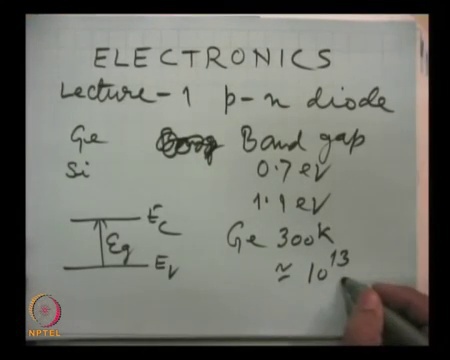 ELECTRONICS
Lecture-1 p-n diode
Ge Band gap
Si 0.7 ev
1.1 ev
Ec
Eg
Ev
Ge 300k
≃ 10^13
NPTEL